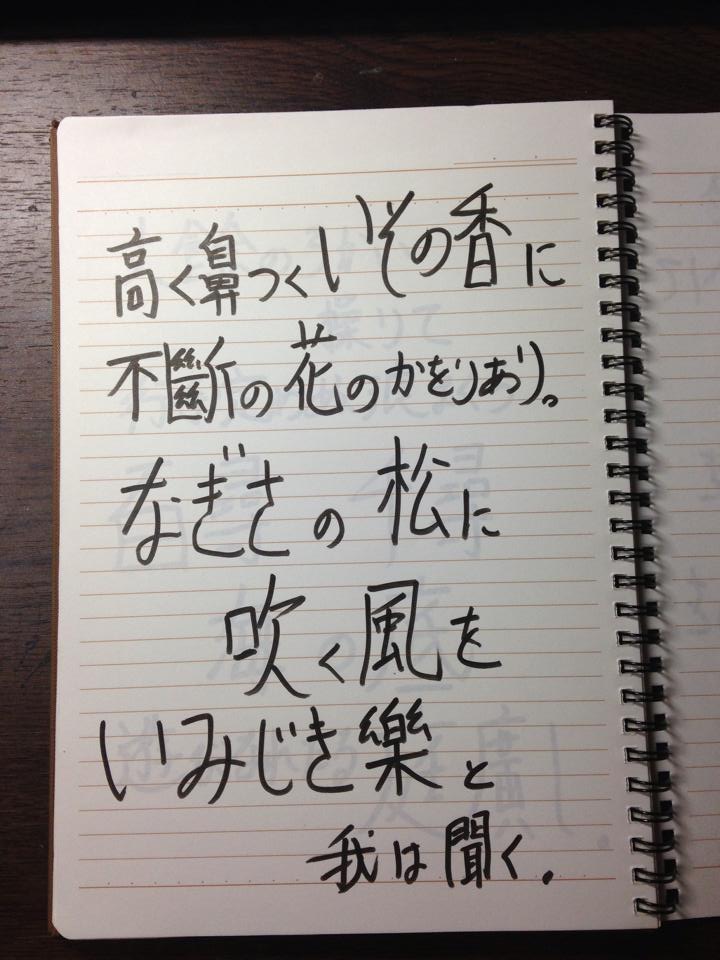 高く鼻つくいその香に
不斷の花のかをりあり。
なぎさの松に
吹く風を
いみじき樂と
我は聞く。